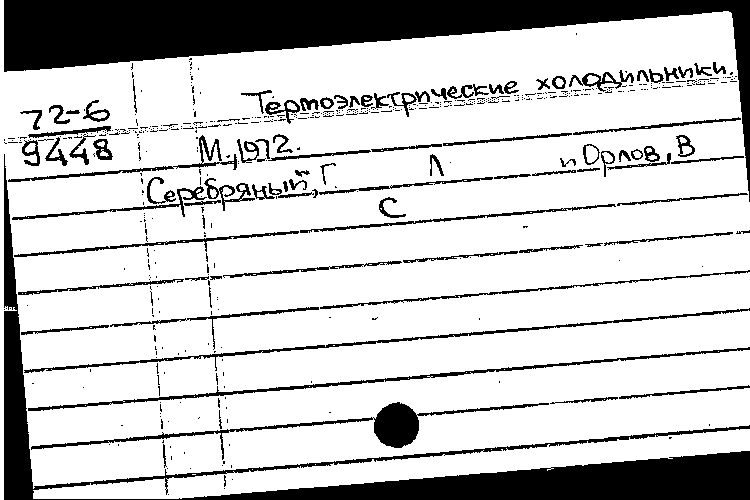 72-6
9448
Термоэлектрические холодильники.
М., 1972.
Серебряный, Г Л и Орлов, В
С